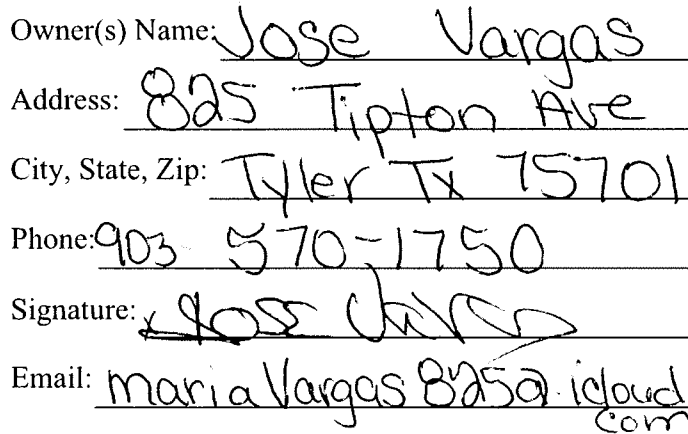 Owner(s) Name: Jose Vargas
Address: 825 Tipton Ave
City, State, Zip: Tyler Tx 75701
Phone: 903 570-1750
Signature: x Jose
Email: mariaVargas825@icloud
com